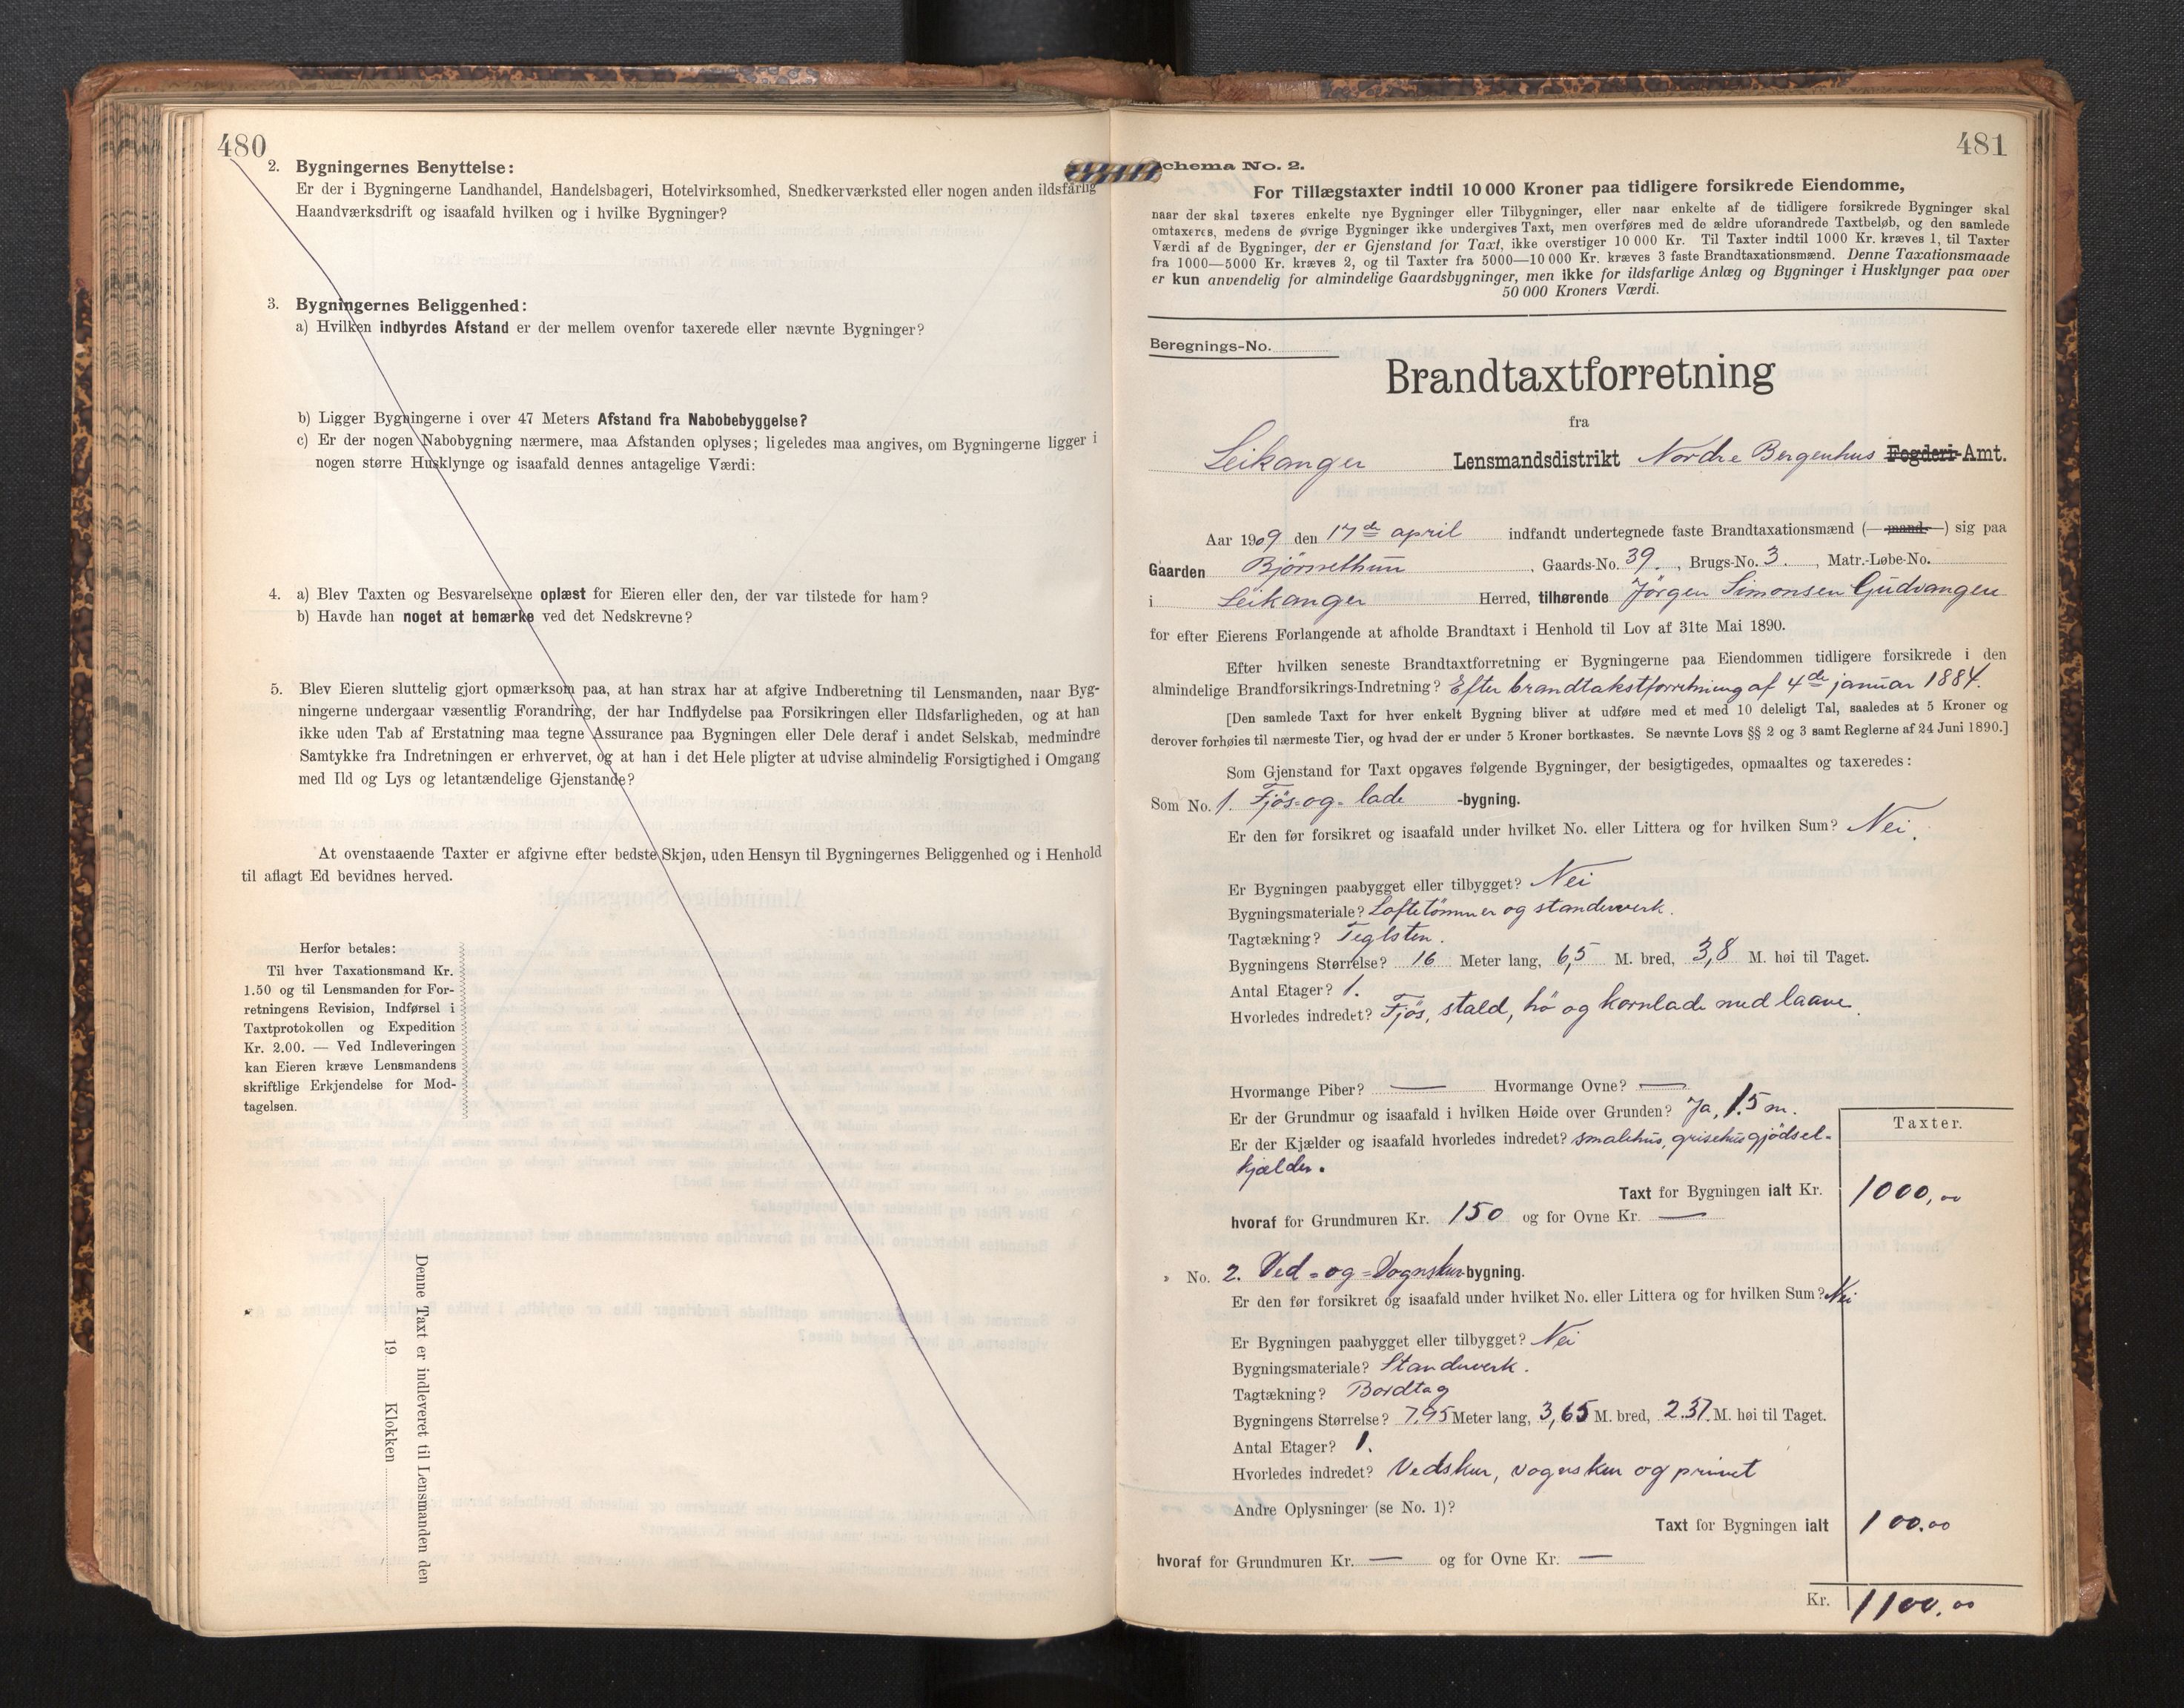 480
2. Bygningernes Benyttelse:
Er der i Bygningerne Landhandel, Handelsbageri, Hotelvirksomhed, Snedkerværksted eller nogen anden ildsfarlig
Haandværksdrift og isaafald hvilken og i hvilke Bygninger?
3. Bygningernes Beliggenhed:
a) Hvilken indbyrdes Afstand er der mellem ovenfor taxerede eller nævnte Bygninger?
b) Ligger Bygningerne i over 47 Meters Afstand fra Nabobebyggelse?
c) Er der nogen Nabobygning nærmere, maa Afstanden oplyses; ligeledes maa angives, om Bygningerne ligger i
nogen større Husklynge og isaafald dennes antagelige Værdi:
4. a) Blev Taxten og Besvarelserne oplæst for Eieren eller den, der var tilstede for ham?
b) Havde han noget at bemærke ved det Nedskrevne?
5. Blev Eieren sluttelig gjort opmærksom paa, at han strax har at afgive Indberetning til Lensmanden, naar Byg-
ningerne undergaar væsentlig Forandring, der har Indflydelse paa Forsikringen eller Ildsfarligheden, og at han
ikke uden Tab af Erstatning maa tegne Assurance paa Bygningen eller Dele deraf i andet Selskab, medmindre
Samtykke fra Indretningen er erhvervet, og at han i det Hele pligter at udvise almindelig Forsigtighed i Omgang
med Ild og Lys og letantændelige Gjenstande?
At ovenstaaende Taxter er afgivne efter bedste Skjøn, uden Hensyn til Bygningernes Beliggenhed og i Henhold
til aflagt Ed bevidnes herved.
Herfor betales:
Til hver Taxationsmand Kr.
1.50 og til Lensmanden for For-
retningens Revision, Indførsel i
Taxtprotokollen og Expedition
Kr. 2.00. — Ved Indleveringen
kan Eieren kræve Lensmandens
skriftlige Erkjendelse for Mod-
tagelsen.
Denne Taxt er indleveret til Lensmanden den
19 Klokken
481
chema No. 2.
For Tillægstaxter indtil 10 000 Kroner paa tidligere forsikrede Eiendomme,
naar der skal taxeres enkelte nye Bygninger eller Tilbygninger, eller naar enkelte af de tidligere forsikrede Bygninger skal
omtaxeres, medens de øvrige Bygninger ikke undergives Taxt, men overføres med de ældre uforandrede Taxtbeløb, og den samlede
Værdi af de Bygninger, der er Gjenstand for Taxt, ikke overstiger 10 000 Kr. Til Taxter indtil 1000 Kr. kræves 1, til Taxter
fra 1000—5000 Kr. kræves 2, og til Taxter fra 5000—10 000 Kr. kræves 3 faste Brandtaxationsmænd. Denne Taxationsmaade
er kun anvendelig for almindelige Gaardsbygninger, men ikke for ildsfarlige Anlæg og Bygninger i Husklynger paa over
50 000 Kroners Værdi.
Beregnings-No.
Brandtaxtforretning
fra
Leikanger Lensmandsdistrikt Nordre Bergenhus Fogderi-Amt.
Aar 1909 den 17de april indfandt undertegnede faste Brandtaxationsmænd (—mand—) sig paa
Gaarden Bjørnethun, Gaards-No. 39., Brugs-No. 3., Matr.-Løbe-No.
i Leikanger Herred, tilhørende Jørgen Simonsen Gudvangen
for efter Eierens Forlangende at afholde Brandtaxt i Henhold til Lov af 31te Mai 1890.
Efter hvilken seneste Brandtaxtforretning er Bygningerne paa Eiendommen tidligere forsikrede i den
almindelige Brandforsikrings-Indretning? Efter brandtakstforretning af 4de januar 1884.
[Den samlede Taxt for hver enkelt Bygning bliver at udføre med et med 10 deleligt Tal, saaledes at 5 Kroner og
derover forhøies til nærmeste Tier, og hvad der er under 5 Kroner bortkastes. Se nævnte Lovs §§ 2 og 3 samt Reglerne af 24 Juni 1890.]
Som Gjenstand for Taxt opgaves følgende Bygninger, der besigtigedes, opmaaltes og taxeredes:
Som No. 1. Fjøs-og-lade -bygning.
Er den før forsikret og isaafald under hvilket No. eller Littera og for hvilken Sum? Nei.
Er Bygningen paabygget eller tilbygget? Nei
Bygningsmateriale? Loftetømmer og standerverk.
Tagtækning? Teglsten.
Bygningens Størrelse? 16 Meter lang, 6,5 M. bred, 3,8 M. høi til Taget.
Antal Etager? 1.
Hvorledes indredet? Fjøs, stald, hø og kornlade med laave.
Hvormange Piber? — Hvormange Ovne? —
Er der Grundmur og isaafald i hvilken Høide over Grunden? Ja, 1.5 m.
Er der Kjælder og isaafald hvorledes indredet? smalehus, grisehus gjødsel-
kjælder.
Taxter.
Taxt for Bygningen ialt Kr. 1000,00
hvoraf for Grundmuren Kr. 150 og for Ovne Kr. —
» No. 2. Ved-og-Vognskurbygning.
Er den før forsikret og isaafald under hvilket No. eller Littera og for hvilken Sum? Nei
Er Bygningen paabygget eller tilbygget? Nei
Bygningsmateriale? Standerverk.
Tagtækning? Bordtag
Bygningens Størrelse? 7.95 Meter lang, 3,65 M. bred, 2.37. M. høi til Taget.
Antal Etager? 1.
Hvorledes indredet? Vedskur, vognskur og privet
Andre Oplysninger (se No. 1)?
Taxt for Bygningen ialt 100.00
hvoraf for Grundmuren Kr. — og for Ovne Kr. —
Kr. 1100.00